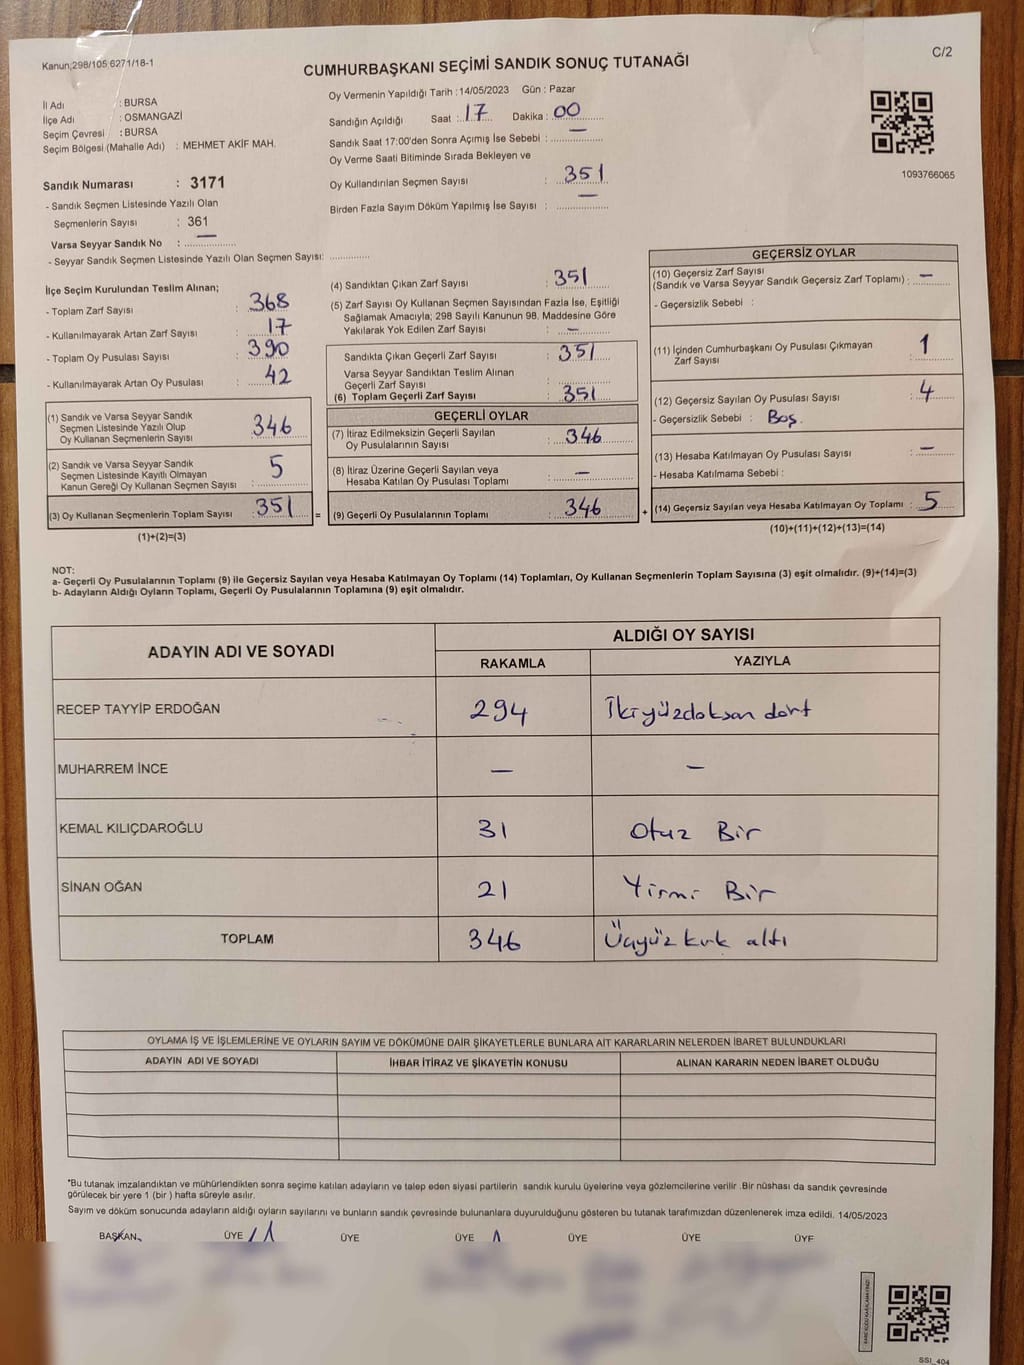 Kanun;298/105 6271/18-1
C/2
CUMHURBAŞKANI SEÇİMİ SANDIK SONUÇ TUTANAĞI
İl Adı : BURSA
İlçe Adı : OSMANGAZİ
Seçim Çevresi : BURSA
Seçim Bölgesi (Mahalle Adı) : MEHMET AKİF MAH.
Oy Vermenin Yapıldığı Tarih :14/05/2023 Gün : Pazar
Sandığın Açıldığı Saat : 17 Dakika : 00
Sandık Saat 17:00'den Sonra Açmış İse Sebebi : —
Oy Verme Saati Bitiminde Sırada Bekleyen ve
Oy Kullandırılan Seçmen Sayısı : 351
Birden Fazla Sayım Döküm Yapılmış İse Sayısı : —
1093766065
Sandık Numarası : 3171
- Sandık Seçmen Listesinde Yazılı Olan
Seçmenlerin Sayısı : 361
Varsa Seyyar Sandık No : —
- Seyyar Sandık Seçmen Listesinde Yazılı Olan Seçmen Sayısı:
İlçe Seçim Kurulundan Teslim Alınan;
- Toplam Zarf Sayısı : 368
- Kullanılmayarak Artan Zarf Sayısı : 17
- Toplam Oy Pusulası Sayısı : 390
- Kullanılmayarak Artan Oy Pusulası : 42
(1) Sandık ve Varsa Seyyar Sandık
Seçmen Listesinde Yazılı Olup
Oy Kullanan Seçmenlerin Sayısı : 346
(2) Sandık ve Varsa Seyyar Sandık
Seçmen Listesinde Kayıtlı Olmayan
Kanun Gereği Oy Kullanan Seçmen Sayısı : 5
(3) Oy Kullanan Seçmenlerin Toplam Sayısı : 351 =
(1)+(2)=(3)
(4) Sandıktan Çıkan Zarf Sayısı : 351
(5) Zarf Sayısı Oy Kullanan Seçmen Sayısından Fazla İse, Eşitliği
Sağlamak Amacıyla; 298 Sayılı Kanunun 98. Maddesine Göre
Yakılarak Yok Edilen Zarf Sayısı : —
Sandıkta Çıkan Geçerli Zarf Sayısı : 351
Varsa Seyyar Sandıktan Teslim Alınan
Geçerli Zarf Sayısı :
(6) Toplam Geçerli Zarf Sayısı : 351
GEÇERLİ OYLAR
(7) İtiraz Edilmeksizin Geçerli Sayılan
Oy Pusulalarının Sayısı : 346
(8) İtiraz Üzerine Geçerli Sayılan veya
Hesaba Katılan Oy Pusulası Toplamı : —
(9) Geçerli Oy Pusulalarının Toplamı : 346 +
GEÇERSİZ OYLAR
(10) Geçersiz Zarf Sayısı
(Sandık ve Varsa Seyyar Sandık Geçersiz Zarf Toplamı) : —
- Geçersizlik Sebebi :
(11) İçinden Cumhurbaşkanı Oy Pusulası Çıkmayan
Zarf Sayısı : 1
(12) Geçersiz Sayılan Oy Pusulası Sayısı : 4
- Geçersizlik Sebebi : Boş.
(13) Hesaba Katılmayan Oy Pusulası Sayısı : —
- Hesaba Katılmama Sebebi :
(14) Geçersiz Sayılan veya Hesaba Katılmayan Oy Toplamı : 5
(10)+(11)+(12)+(13)=(14)
NOT:
a- Geçerli Oy Pusulalarının Toplamı (9) ile Geçersiz Sayılan veya Hesaba Katılmayan Oy Toplamı (14) Toplamları, Oy Kullanan Seçmenlerin Toplam Sayısına (3) eşit olmalıdır. (9)+(14)=(3)
b- Adayların Aldığı Oyların Toplamı, Geçerli Oy Pusulalarının Toplamına (9) eşit olmalıdır.
ADAYIN ADI VE SOYADI ALDIĞI OY SAYISI
RAKAMLA YAZIYLA
RECEP TAYYİP ERDOĞAN 294 İkiyüzdoksan dört
MUHARREM İNCE — —
KEMAL KILIÇDAROĞLU 31 Otuz Bir
SİNAN OĞAN 21 Yirmi Bir
TOPLAM 346 Üçyüz kırk altı
OYLAMA İŞ VE İŞLEMLERİNE VE OYLARIN SAYIM VE DÖKÜMÜNE DAİR ŞİKAYETLERLE BUNLARA AİT KARARLARIN NELERDEN İBARET BULUNDUKLARI
ADAYIN ADI VE SOYADI İHBAR İTİRAZ VE ŞİKAYETİN KONUSU ALINAN KARARIN NEDEN İBARET OLDUĞU
"Bu tutanak imzalandıktan ve mühürlendikten sonra seçime katılan adayların ve talep eden siyasi partilerin sandık kurulu üyelerine veya gözlemcilerine verilir .Bir nüshası da sandık çevresinde
görülecek bir yere 1 (bir ) hafta süreyle asılır.
Sayım ve döküm sonucunda adayların aldığı oyların sayılarını ve bunların sandık çevresinde bulunanlara duyurulduğunu gösteren bu tutanak tarafımızdan düzenlenerek imza edildi. 14/05/2023
BAŞKAN ÜYE ÜYE ÜYE ÜYE ÜYE ÜYE
SSI_404